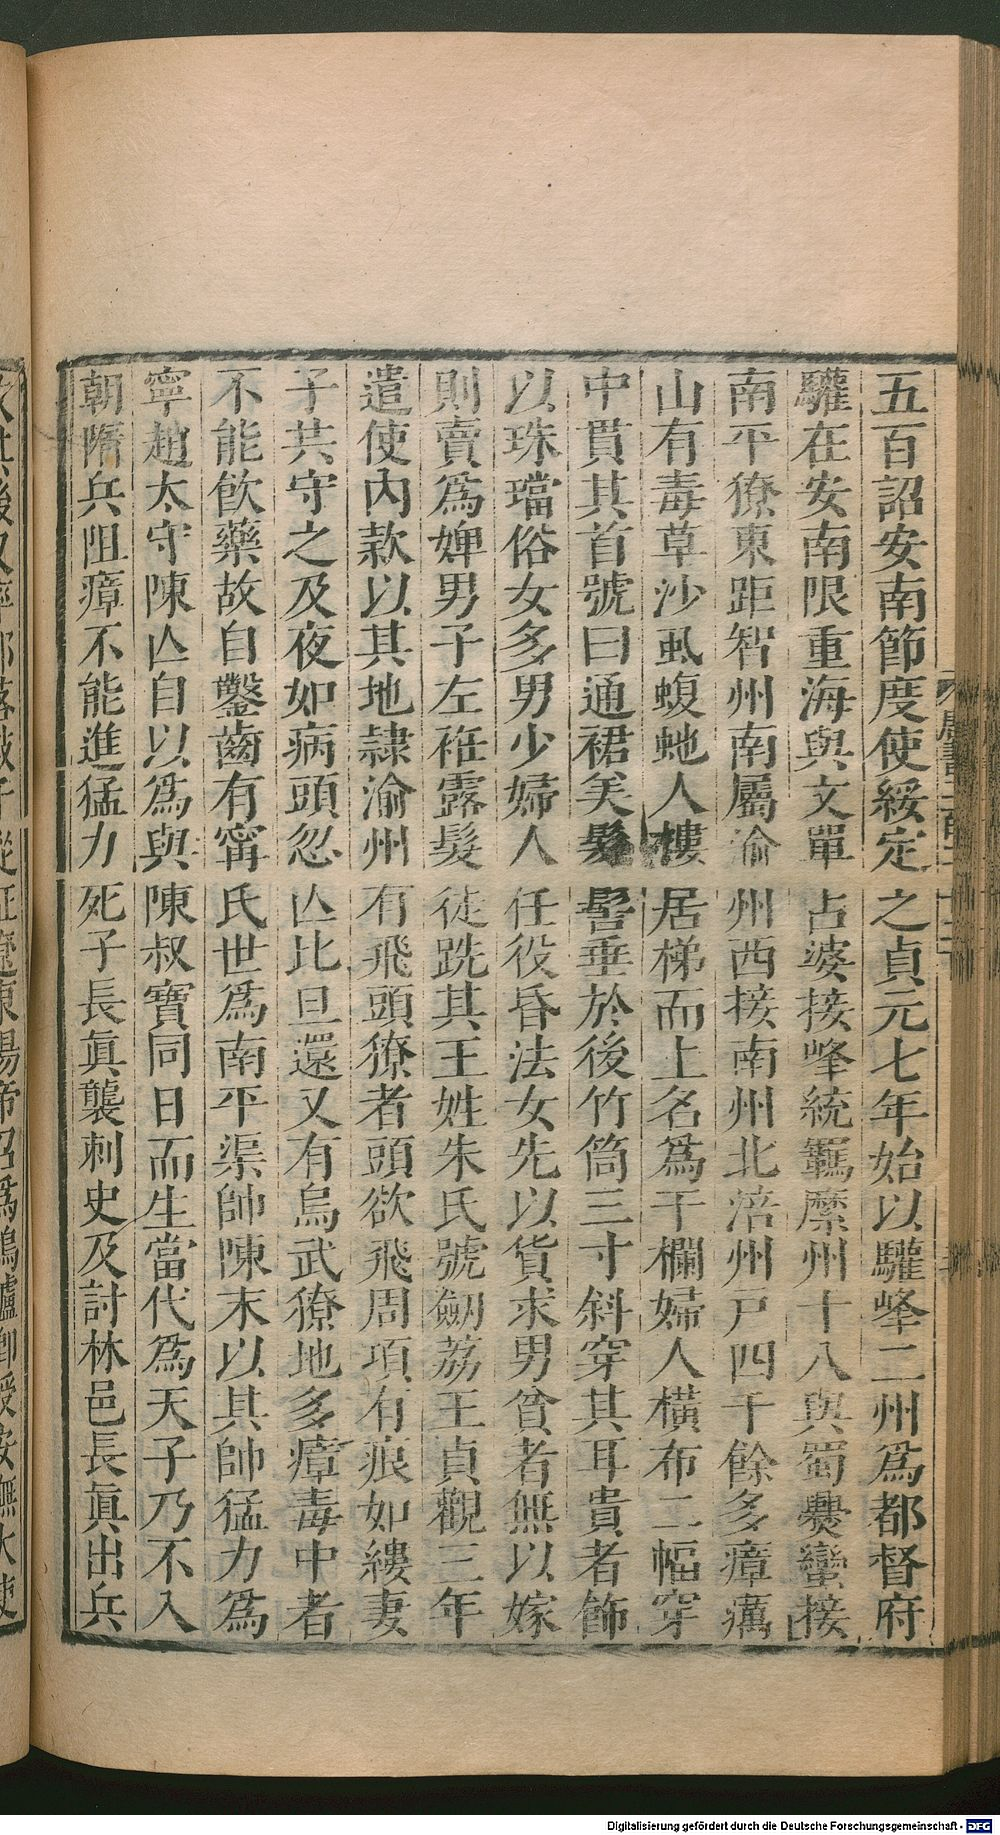 五百詔安南節度使綏定之貞元七年始以驩峰二州爲都督府
驩在安南限重海與文單占婆接峰統羈縻州十八與蜀爨蠻接
南平獠東距智州南屬渝州西接南州北涪州戸四千餘多瘴癘
山有毒草沙虱蝮虵人樓居梯而上名爲干欄婦人橫布二幅穿
中貫其首號曰通裙美髮髻垂於後竹筒三寸斜穿其耳貴者飾
以珠璫俗女多男少婦人任役昏法女先以貨求男貧者無以嫁
則賣爲婢男子左袵露髮徒跣其王姓朱氏號劒荔王貞觀三年
遣使內款以其地隷渝州有飛頭獠者頭欲飛周項有痕如縷妻
子共守之及夜如病頭忽亾比旦還又有烏武獠地多瘴毒中者
不能飮藥故自鑿齒有甯氏世爲南平渠帥陳末以其帥猛力爲
寧趙太守陳亾自以爲與陳叔寶同日而生當代爲天子乃不入
朝隋兵阻瘴不能進猛力死子長眞襲刺史及討林邑長眞出兵
Digitalisierung gefördert durch die Deutsche Forschungsgemeinschaft - DFG